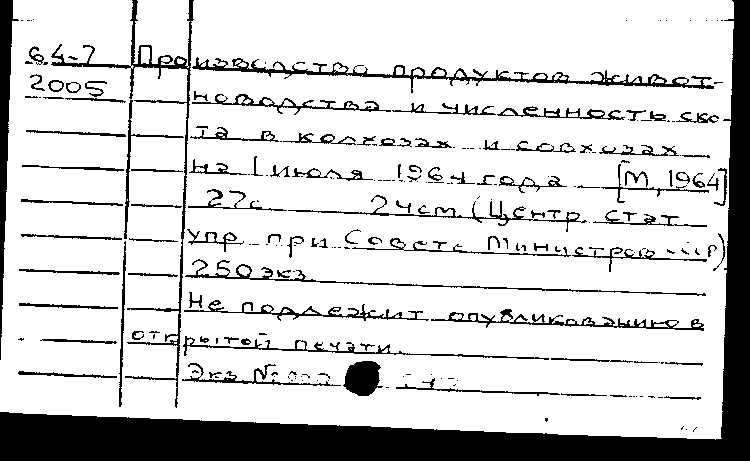 64-7 Производство продуктов живот-
2005 новодства и численность ско-
та в колхозах и совхозах
на 1 июля 1964 года [М, 1964]
27с 24см (Центр. стат
упр при Совете Министров СССР)
250 экз
Не подлежит опубликованию в
открытой печати.
Экз №